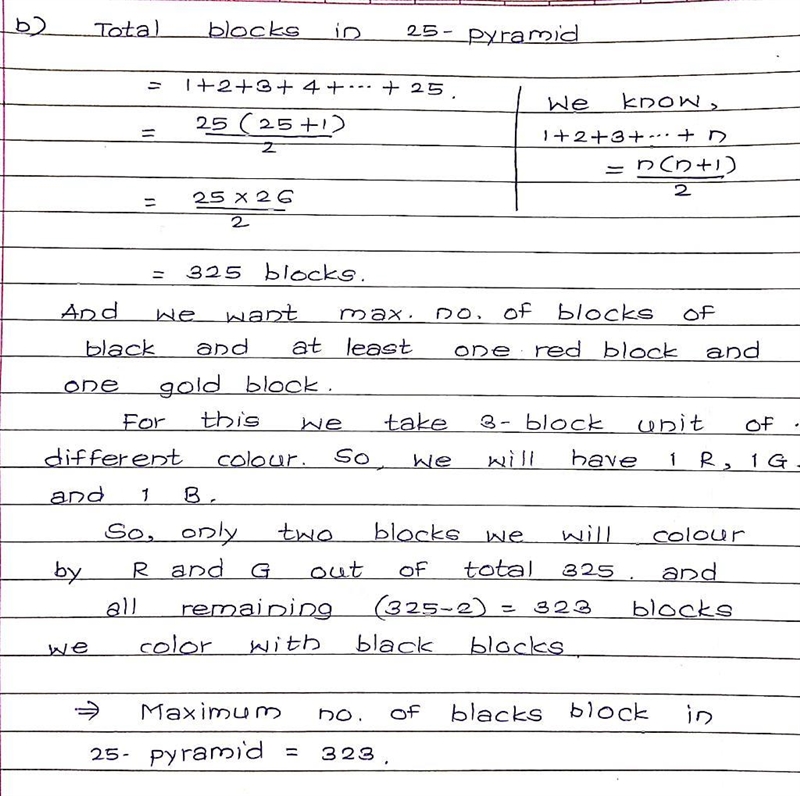 b) Total blocks in 25- pyramid
= 1+2+3+4+...+25.
= 25(25+1)/2
= 25×26/2
= 325 blocks.
We know,
1+2+3+...+n
= n(n+1)/2
And we want max. no. of blocks of
black and at least one red block and
one gold block.
For this we take 3-block unit of
different colour. So, we will have 1 R, 1 G
and 1 B.
So, only two blocks we will colour
by R and G out of total 325. and
all remaining (325-2) = 323 blocks
we color with black blocks.
⇒ Maximum no. of blacks block in
25- pyramid = 323.